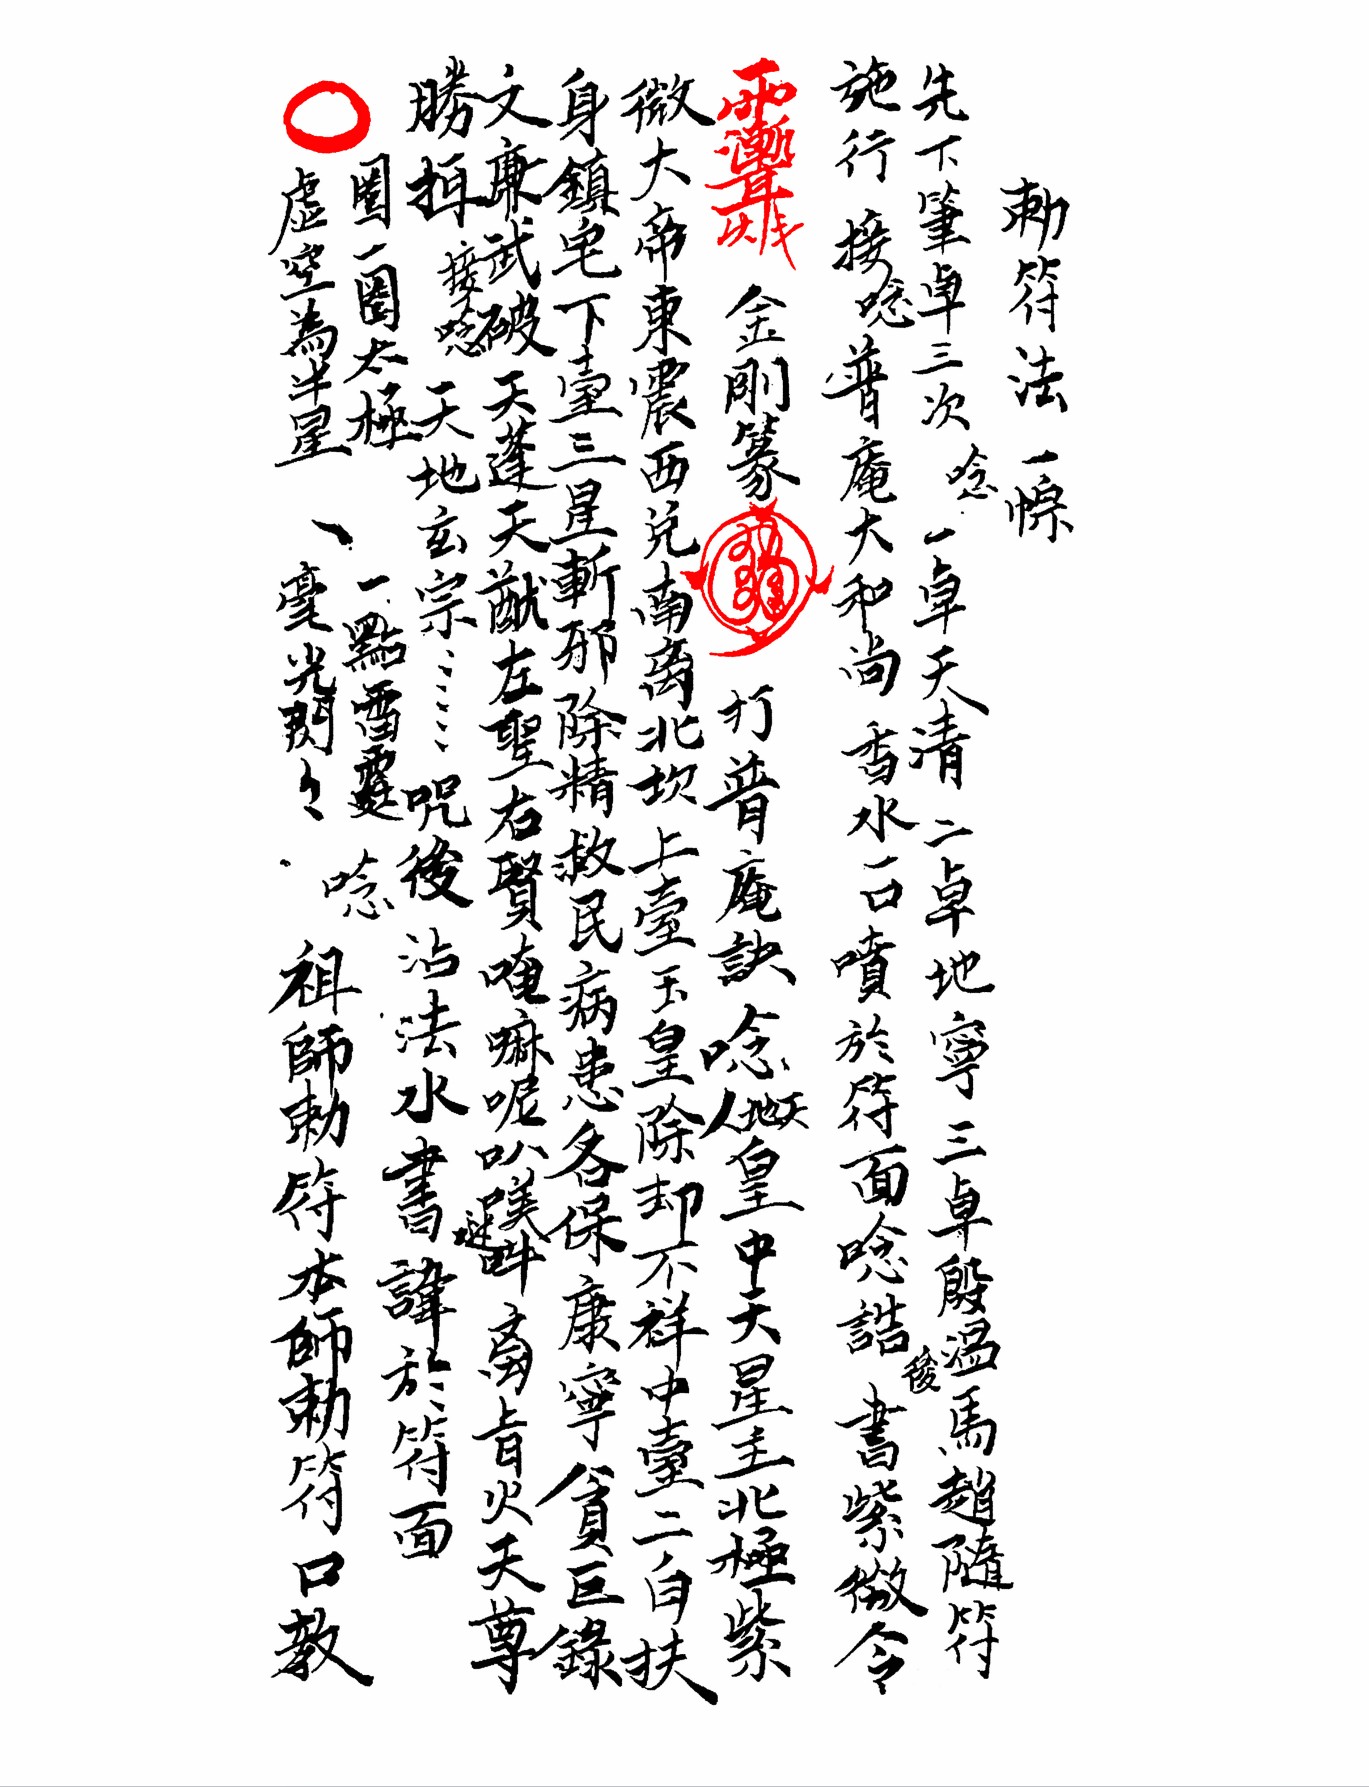 勅符法一條
先下筆卓三次 唸 一卓天清 二卓地寧 三卓殷温馬趙隨符
施行 接唸普庵大和尚 香水一口噴於符面唸誥後 書紫微令
金剛篆 打普庵訣 唸天地人皇中天星主北極紫
微大帝東震西兌南离北坎上臺玉皇除却不祥中臺二白扶
身鎮宅下臺三星斬邪除精救民病患各保康寧貪巨錄
文廉武破天蓬天猷左聖右賢唵嘛呢叭㗑吽 天尊
勝 接唸 天地玄宗⋯⋯咒後 沾法水書諱於符面
圈一圈太極 一點雷霆 唸
虛空為半星 丶 毫光閃々 祖師勅符本師勅符 口教